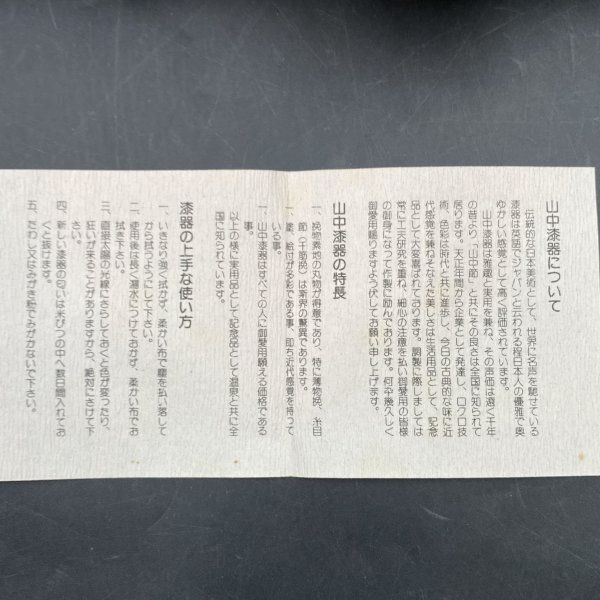 山中漆器について
伝統的な日本美術として、世界に名声を馳せている
漆器は英語でジャパンと云われる程日本人の優雅で奥
ゆかしい感覚として高く評価されています。
山中漆器は雅趣と実用を兼ね、その声価は遠く千年
の昔より「山中節」と共にその良さは全国に知られて
居ります。天正年間から企業として発達し、ロクロ技
術、色彩は時代と共に進歩し、今日の古典的な味に近
代感覚を兼ねそなえた美しさは生活用品として、記念
品として大変喜ばれております。調製に際しましては
常に工夫研究を重ね、細心の注意を払い御愛用の皆様
の御身になつて作製に励んでおります。何卒幾久しく
御愛用賜りますよう伏してお願い申し上げます。
山中漆器の特長
一、挽物素地の丸物が得意であり、特に薄物挽、糸目
節（千筋挽）は斯界の驚異であります。
一、塗、絵付が多彩である事、即ち近代感覚を持って
いる事。
一、山中漆器はすべての人に御愛用願える価格である
事。
以上の様に実用品として記念品として温泉と共に全
国に知られています。
漆器の上手な使い方
一、いきなり強く拭かず、柔かい布で塵を払い落して
から拭うようにして下さい。
二、使用後は長く温水につけておかず、柔かい布でお
拭き下さい。
三、直接太陽の光線にさらしておくと色が変つたり、
狂いが来ることがありますから、絶対にさけて下
さい。
四、新しい漆器の匂いは米びつの中へ数日間入れてお
くと抜けます。
五、たわし又はみがき粉でみがかないで下さい。